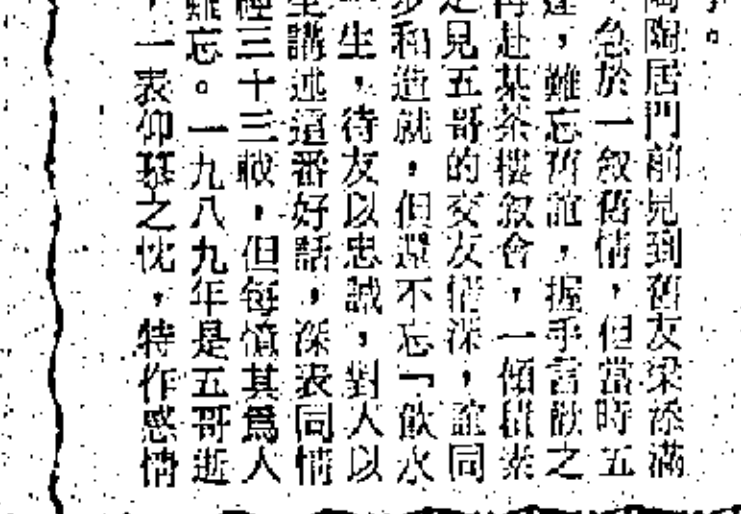 字。
陶陶居門前見到舊友梁添滿
，急於一叙舊情，但當時五
逢，難忘舊誼，握手言歡之
再赴某茶樓叙會，一傾積素
足見五哥的交友情深，誼同
步和造就，但還不忘「飲水
一生，待友以忠誠，對人以
生講述這番好話，深表同情
經三十三載，但每憶其爲人
難忘。一九八九年是五哥逝
，一表仰慕之忱，特作感情